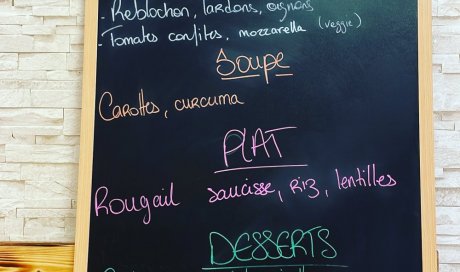 - Reblochon, lardons, oignons
- Tomates confites, mozzarella (veggie)
Soupe
Carottes, curcuma
PLAT
Rougail saucisse, Riz, lentilles
DESSERTS